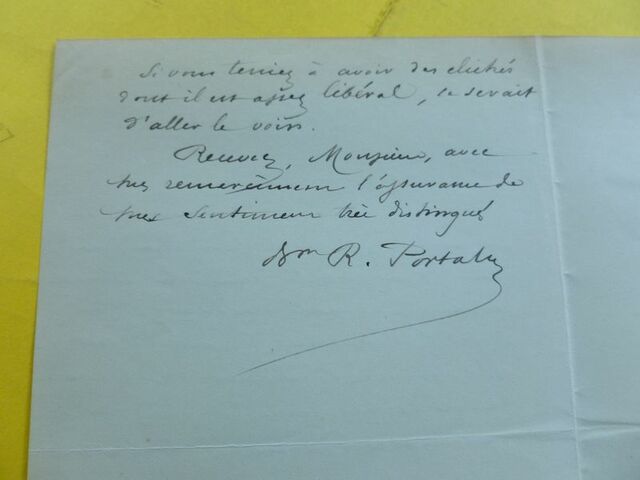 Si vous teniez à avoir des clichés
dont il est assez libéral, ce serait
d'aller le voir.
Recevez, Monsieur, avec
mes remerciements l'assurance de
mes sentiments très distingués
Bon R. Portalis